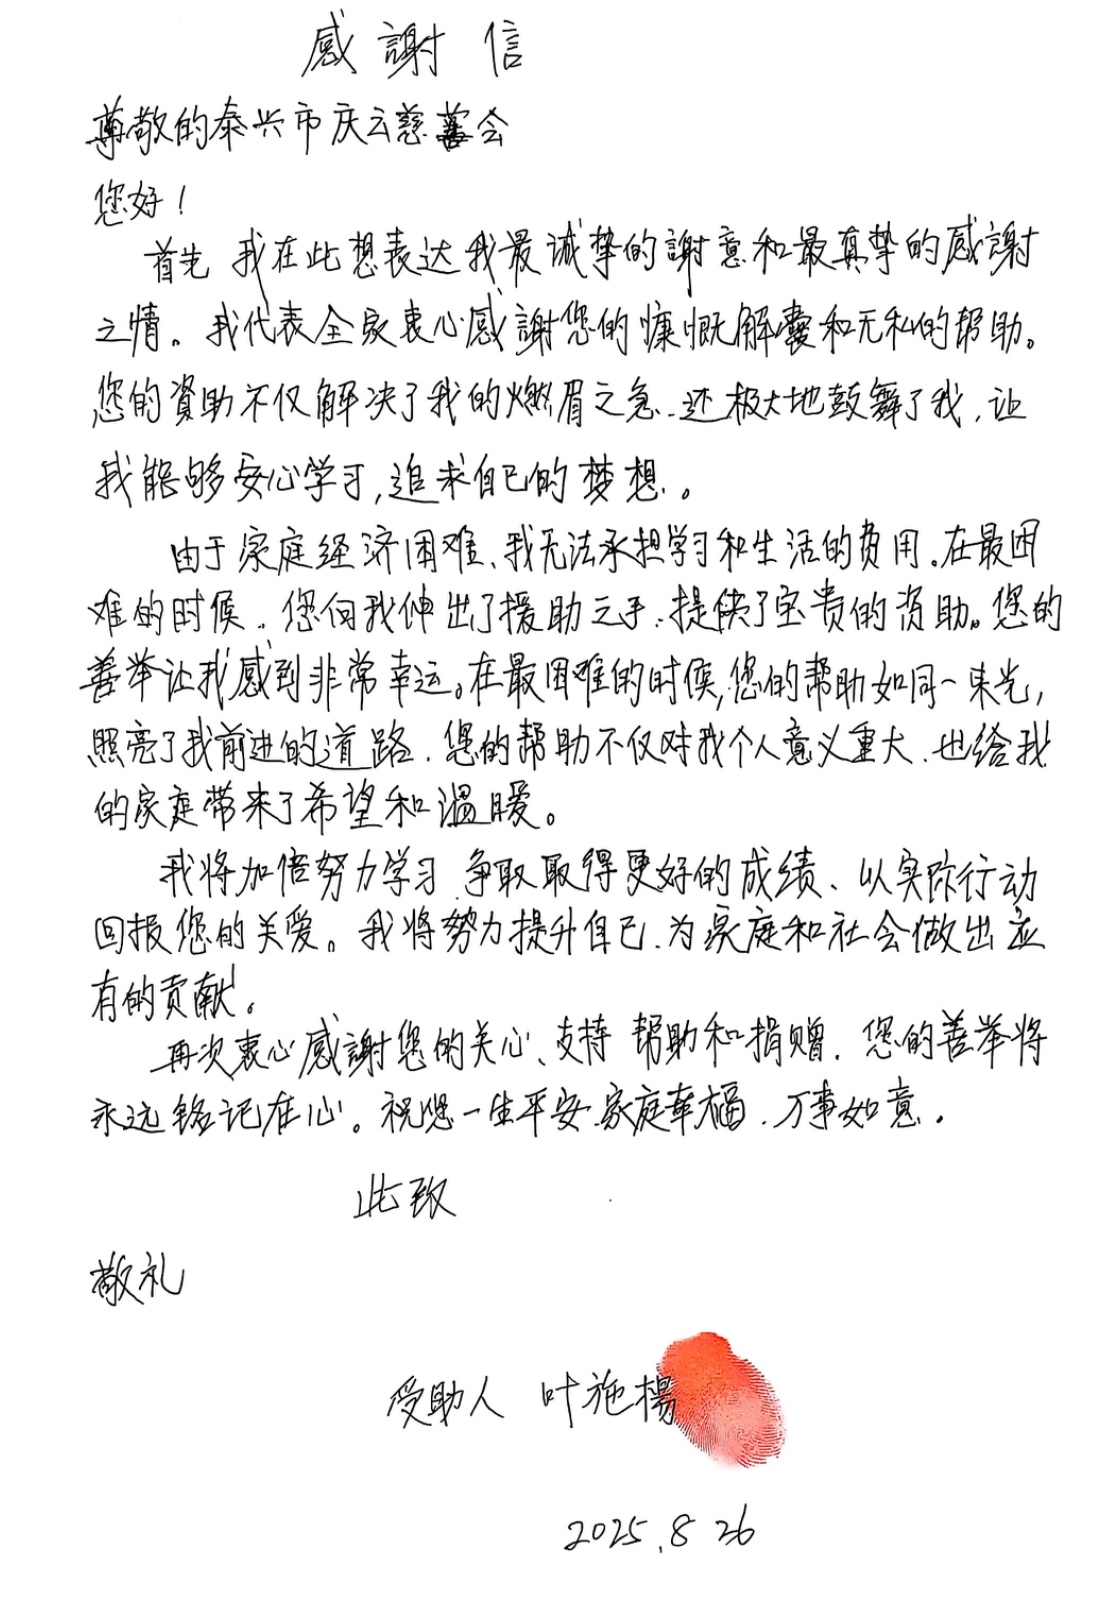 感謝信
尊敬的泰兴市庆云慈善会
您好！
首先 我在此想表达我最诚挚的謝意和最真挚的感謝
之情。我代表全家衷心感謝您的慷慨解囊和无私的帮助。
您的資助不仅解决了我的燃眉之急.还极大地鼓舞了我,让
我能够安心学习,追求自己的梦想.。
由于家庭经济困难、我无法承担学习和生活的费用.在最困
难的时候.您向我伸出了援助之手.提供了宝贵的资助。您的
善举让我感到非常幸运。在最困难的时候,您的帮助如同一束光,
照亮了我前进的道路.您的帮助不仅对我个人意义重大.也给我
的家庭带来了希望和温暖。
我将加倍努力学习 争取取得更好的成绩、以实际行动
回报您的关爱。我将努力提升自己.为家庭和社会做出应
有的贡献。
再次衷心感謝您的关心、支持 帮助和捐赠.您的善举将
永远铭记在心。祝您一生平安.家庭幸福.万事如意.
此致
敬礼
受助人 叶施楊
2025.8 26